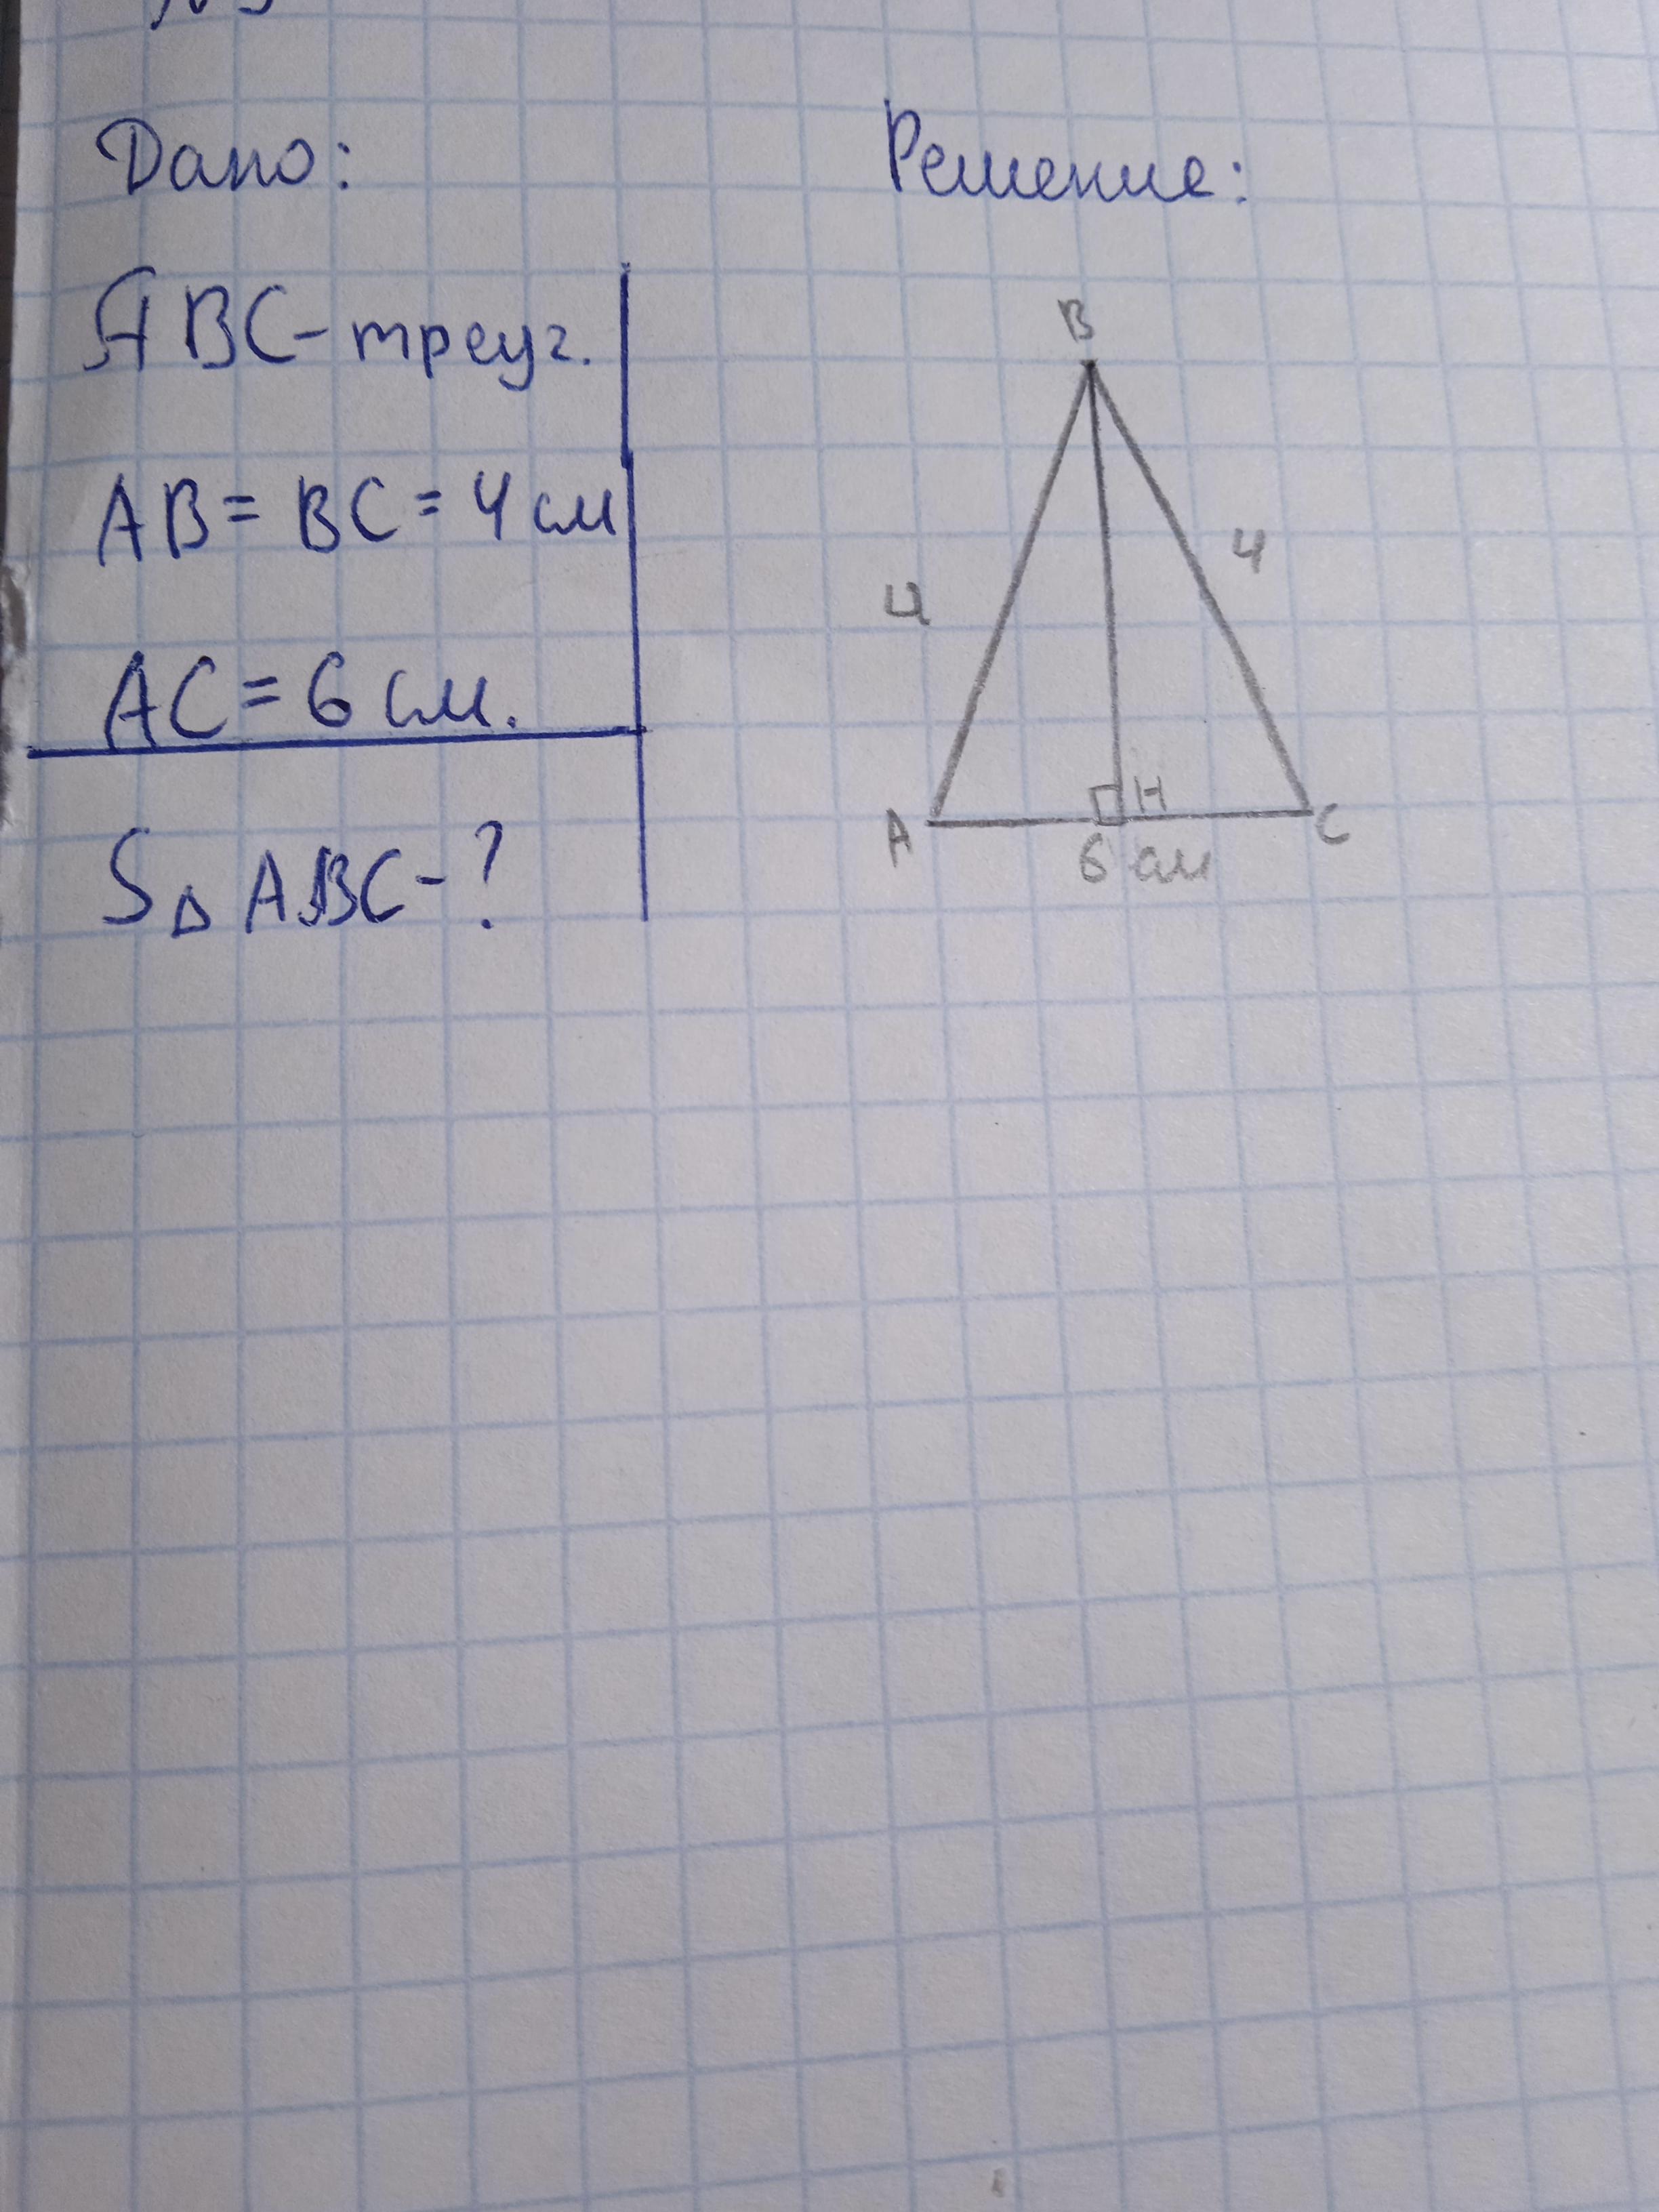 Дано:
ABC-треуг.
AB = BC = 4 см
AC = 6 см.
S△ ABC-?
Решение:
B
4
4
A
H
C
6 см